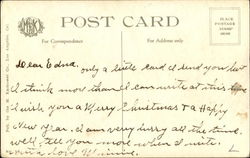 POST CARD
For Correspondence
For Address Only
PLACE
POSTAGE
STAMP
HERE
Dear Edna.
only a little card I send you but
I think more than I can write at this time
I wish you a Merry Christmas & a Happy
New Year. I am very busy all the time.
well, tell you more when I write.